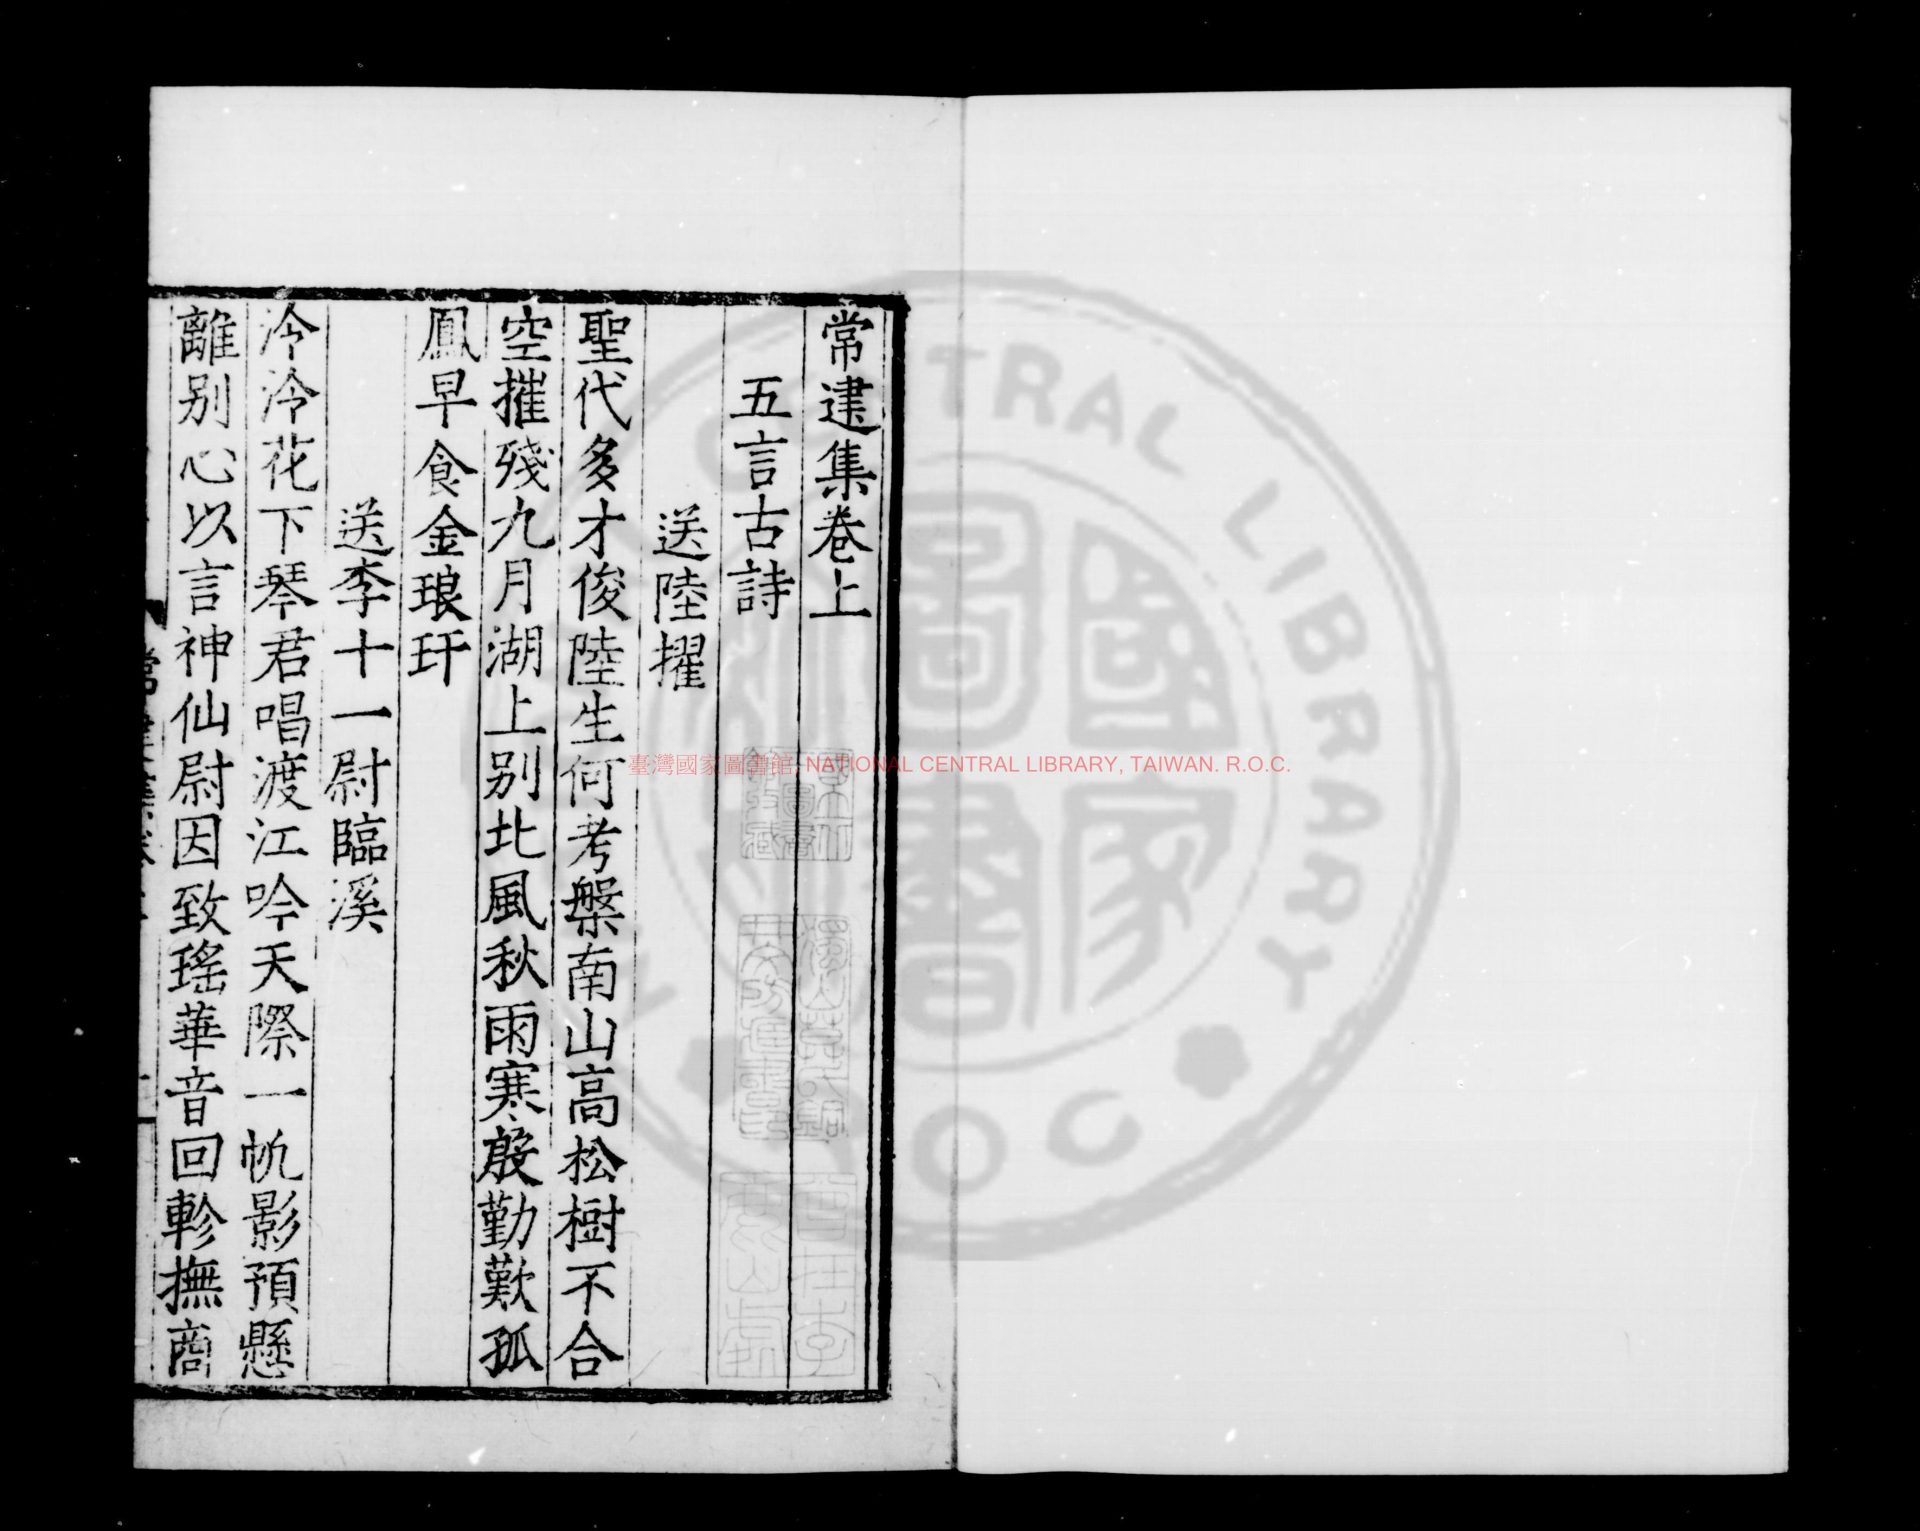 常建集卷上
五言古詩
送陸擢
聖代多才俊陸生何考槃南山高松樹不合
空摧殘九月湖上别北風秋雨寒殷勤歎孤
鳳早食金琅玕
送李十一尉臨溪
泠泠花下琴君唱渡江吟天際一帆影預懸
離别心以言神仙尉因致瑤華音回軫撫商
臺灣國家圖書館, NATIONAL CENTRAL LIBRARY, TAIWAN. R.O.C.
國家圖書
CENTRAL LIBRARY